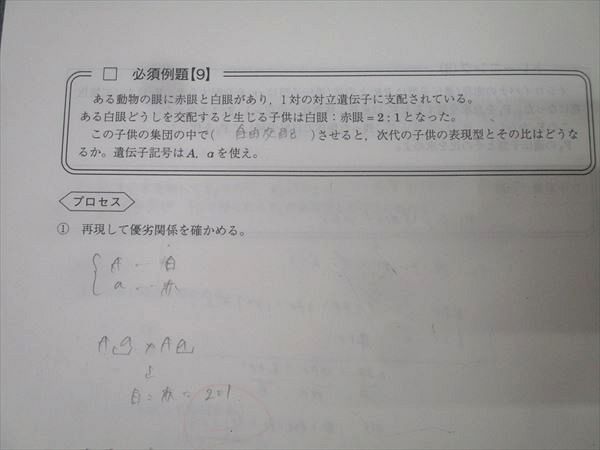 必須例題【9】
ある動物の眼に赤眼と白眼があり,1対の対立遺伝子に支配されている。
ある白眼どうしを交配すると生じる子供は白眼:赤眼=2:1となった。
この子供の集団の中で( 自由交配 )させると,次代の子供の表現型とその比はどうな
るか。遺伝子記号はA,aを使え。
プロセス
① 再現して優劣関係を確かめる。
A … 白
a … 赤
Aa × Aa
↓
白:赤 = 2:1